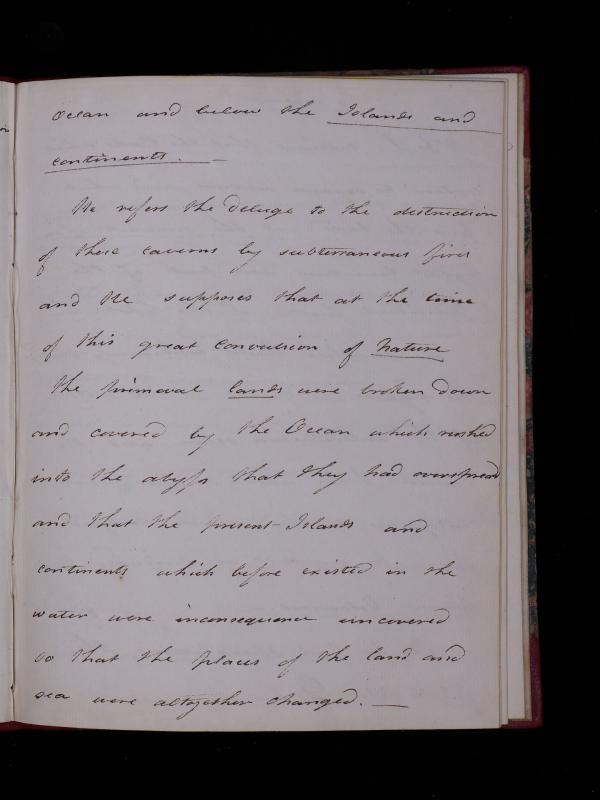 Ocean and below the Islands and
continents. —
He refers the Deluge to the destruction
of these caverns by subterraneous fires
and He supposes that at the time
of this great convulsion of Nature
the primeval lands were broken down
and covered by the Ocean which rushed
into the abyss that they had overspread
and that the present Islands and
continents which before existed in the
water were inconsequence uncovered
so that the places of the land and
sea were altogether changed. —